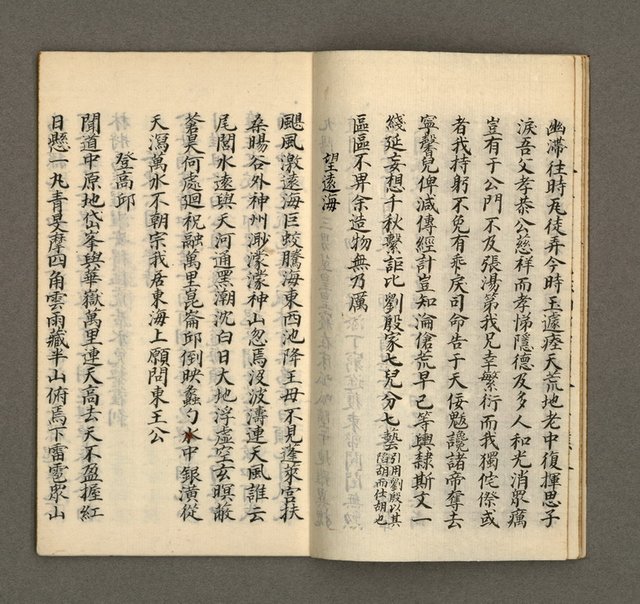 幽滯往時死徒弄今時玉遽瘞天荒地老中復揮思子
淚吾父孝恭公慈祥而孝悌隱德及多人和光消眾癘
豈有于公門不及張湯第我兄幸繁衍而我獨侘傺或
者我持躬不免有乖戾司命告于天佞魃讒諸帝奪去
寧馨兒俾減傳經計豈知淪傖荒早已等輿隸斯文一
綫延妄想千秋繫詎比劉殷家七兒分七藝引用劉殷以其陷胡而仕胡也
區區不畀余造物無乃厲
望遠海
颶風激遠海巨蛟騰海東西池降王母不見蓬萊宮扶
桑暘谷外神州渺濛濛神山忽焉沒波濤連天風誰云
尾閭水遠與天河通黑潮沈白日大地浮虛空玄暝敵
蒼昊何處迴祝融萬里崑崙邱倒映蠡勺水中銀潢從
天瀉萬水不朝宗我居東海上願問東王公
登高邱
聞道中原地岱峯與華嶽萬里連天高去天不盈握紅
日懸一丸青旻摩四角雲雨藏半山俯焉下雷雹眾山